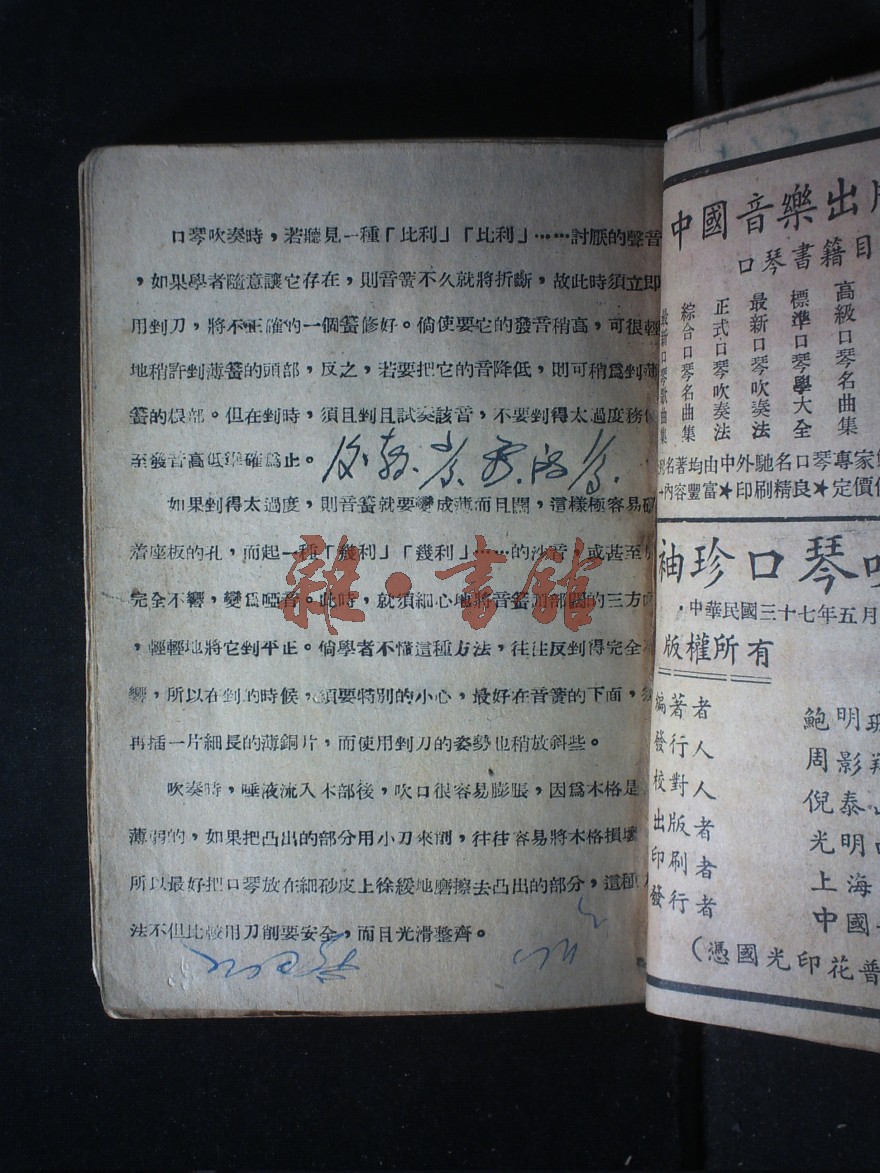 口琴吹奏時，若聽見一種「比利」「比利」……討厭的聲音
，如果學者隨意讓它存在，則音簧不久就將折斷，故此時須立即
用刲刀，將不正確的一個簧修好。倘使要它的發音稍高，可很輕
地稍許刲薄簧的頭部，反之，若要把它的音降低，則可稍爲刲薄
簧的根部。但在刲時，須且刲且試奏該音，不要刲得太過度務使
至發音高低準確爲止。
如果刲得太過度，則音簧就要變成薄而且闊，這樣極容易
着座板的孔，而起一種「幾利」「幾利」……的沙音；或甚至
完全不響，變爲啞音。此時，就須細心地將音簧前部闊的三方
，輕輕地將它刲平正。倘學者不懂這種方法，往往反刲得完全
響，所以在刲的時候，須要特別的小心，最好在音簧的下面，
再插一片細長的薄銅片，而使用刲刀的姿勢也稍放斜些。
吹奏時，唾液流入木部後，吹口很容易膨脹，因爲木格是
薄弱的，如果把凸出的部分用小刀來削，往往容易將木格損壞
所以最好把口琴放在細砂皮上徐緩地磨擦去凸出的部分，這種
法不但比較用刀削要安全，而且光滑整齊。
雜·書館
中國音樂出版
口琴書籍目
高級口琴名曲集
標準口琴學大全
最新口琴吹奏法
正式口琴吹奏法
綜合口琴名曲集
最新口琴歌曲集
名著均由中外馳名口琴專家
內容豐富★印刷精良★定價
袖珍口琴吹
·中華民國三十七年五月
版權所有
編著者 鮑明
發行人 周影翔
校對人 倪泰
出版者 光明
印刷者 上海
發行者 中國
(憑國光印花普